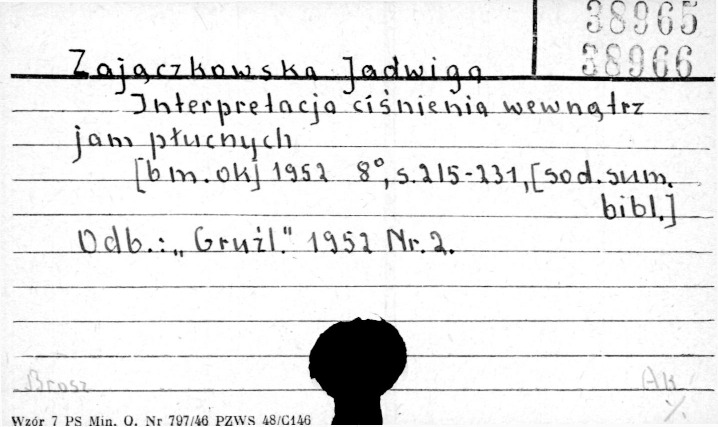 38965
38966
Zajączkowska Jadwiga
Interpretacja ciśnienia wewnątrz
jam płucnych
[b m. ok] 1952 8°, s. 215-231, [sod. sum.
bibl.]
Odb.: „Gruźl." 1952 Nr. 2.
Brosz
AK
Wzór 7 PS Min. O. Nr 797/46 PZWS 48/G146